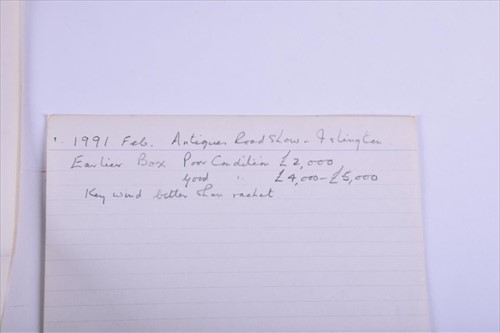 1991 Feb. Antiques Road Show - Islington
Earlier Box Poor Condition £2,000
Good " £4,000-£5,000
Key wind better than rachet